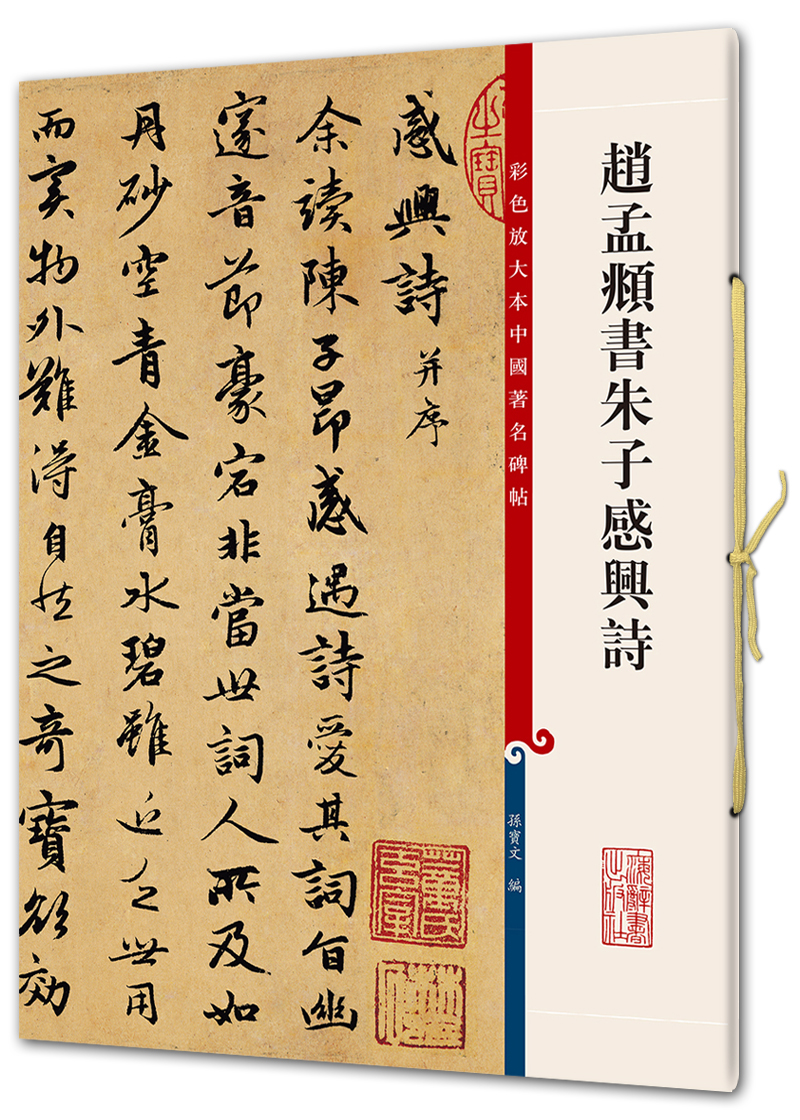 趙孟頫書朱子感興詩
上海辭書出版社
彩色放大本中國著名碑帖
孫寶文 編
之寶
感興詩 并序
余讀陳子昂感遇詩愛其詞旨幽
邃音節豪宕非當世詞人所及如
丹砂空青金膏水碧雖近乏世用
而實物外難得自然之奇寶欲効